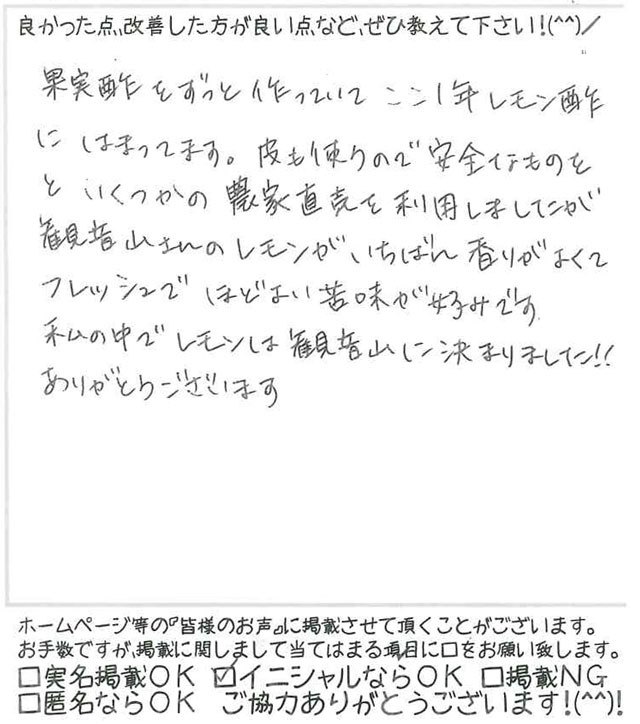 良かった点、改善した方が良い点など、ぜひ教えて下さい!(^^)/
果実酢をずっと作っていて ここ1年レモン酢
に はまってます。皮も使うので 安全なものを
と いくつかの 農家直売を利用しましたが
観音山さんのレモンが いちばん 香りがよくて
フレッシュで ほどよい苦味が好みです
私の中で レモンは 観音山に決まりました!!
ありがとうございます
ホームページ等の『皆様のお声』に掲載させて頂くことがございます。
お手数ですが、掲載に関しまして当てはまる項目に☐をお願い致します。
☐実名掲載OK ☑イニシャルならOK ☐掲載NG
☐匿名ならOK ご協力ありがとうございます!(^^)!